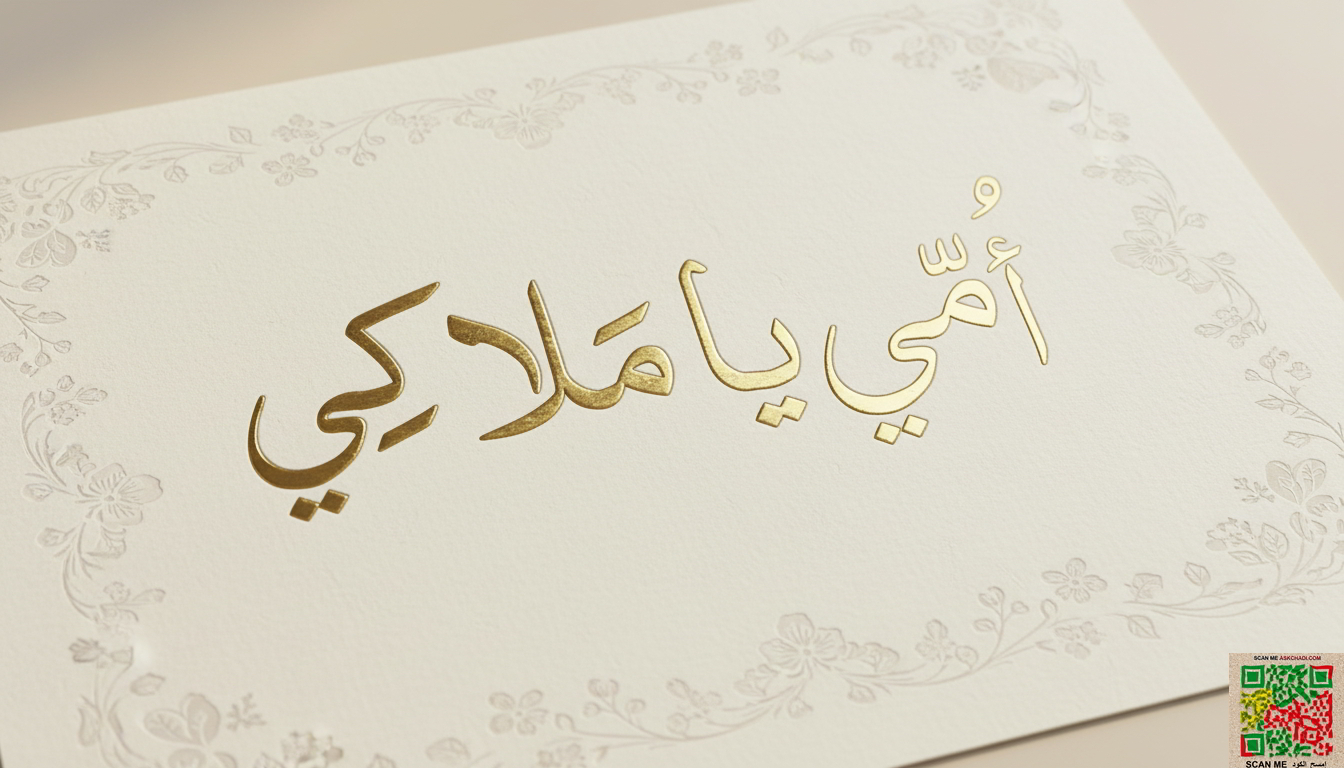 أُمّي يا مَلاكِي
SCAN ME ASKCHADI.COM
SCAN ME امسح الكود